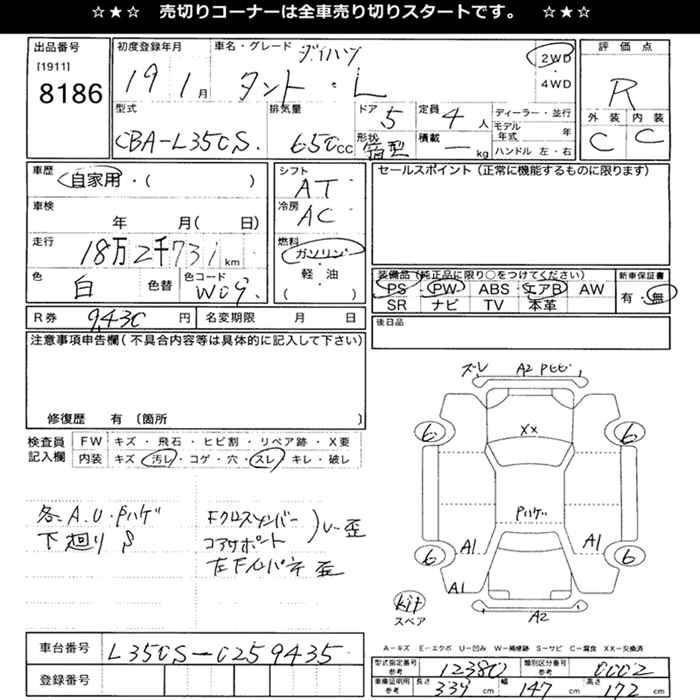 ☆★☆ 売切りコーナーは全車売り切りスタートです。 ☆★☆
出品番号
[1911]
8186
初度登録年月
19 1月
車名・グレード
ダイハツ
タント・L
2WD
・
4WD
評価点
R
外装 内装
C C
型式
CBA-L350S.
排気量
650cc
ドア
5
形状
箱型
定員
4人
積載
ー kg
ディーラー・並行
モデル年式 年
ハンドル 左・右
車歴
自家用・( )
車検
年 月( 日)
走行
18万2千731km
色
白 色替
色コード
W09.
シフト
AT
冷房
AC
燃料
ガソリン
軽・油
( )
セールスポイント(正常に機能するものに限ります)
装備品(純正品に限り○をつけてください)
PS PW ABS エアB AW
SR ナビ TV 本革
新車保証書
有・無
R券 9,430円
名変期限 月 日
後日品
注意事項申告欄(不具合内容等は具体的に記入して下さい)
修復歴 有〔箇所 〕
検査員記入欄
FW キズ・飛石・ヒビ割・リペア跡・X要
内装 キズ・汚レ・コゲ・穴・スレ・キレ・破レ
各A.U.Pハゲ
下廻りS
Fクロスメンバー
コアサポート
U-歪
左F 歪
ズレ A2 Pヒビ
XX
6 6
Pハゲ
A1 A1
6 6
A1
A2
kit
スペア
A−キズ E−エクボ U−凹み W−補修跡 S−サビ C−腐食 XX−交換済
車台番号 L350S-0259435
登録番号
型式指定番号 参考 12380
類別区分番号 参考 0002
車庫証明用 参考 長さ 339cm 幅 147cm 高さ 172cm